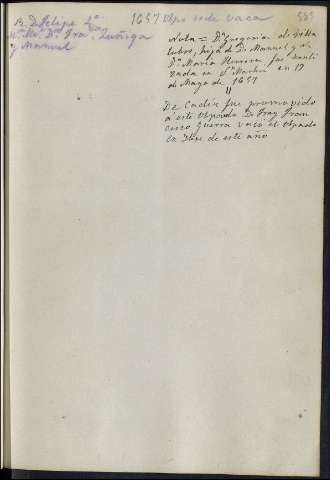 R. D. Felipe 4º
Mº. Rl. Dn. Fran. Zuñiga
y Manuel
1657 Obpo sede vaca
Nota = Dª Gregoria de Villa
lobos, hija de D. Manuel y de
Dª Maria Herrera fue bauti
zada en Sn. Martin en 17
de Mayo de 1657
"
De Cadiz fue promovido
a este Obpado D. Fray Fran
cisco Guerra vacó el Obpado
en Dbre de este año